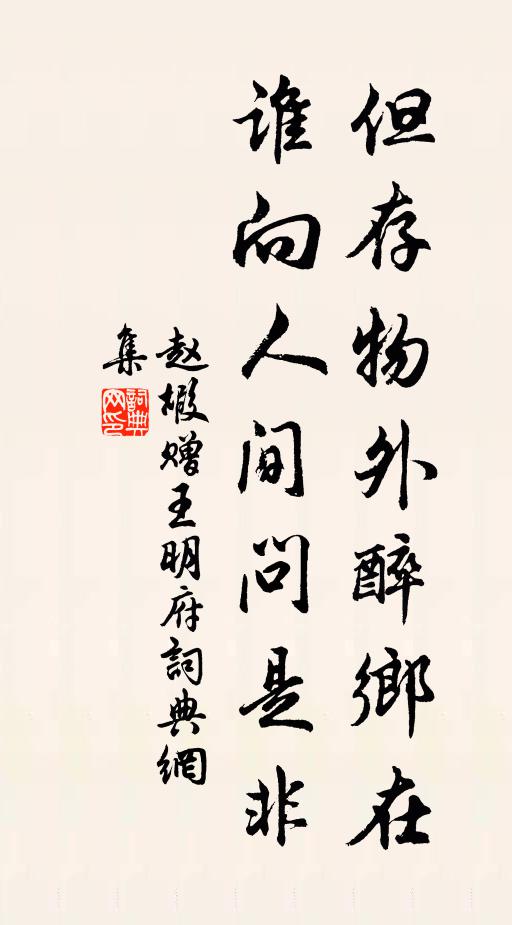 但存物外醉鄉在
谁向人间問是非
赵嘏赠王明府詞典網
集
詞典
网印